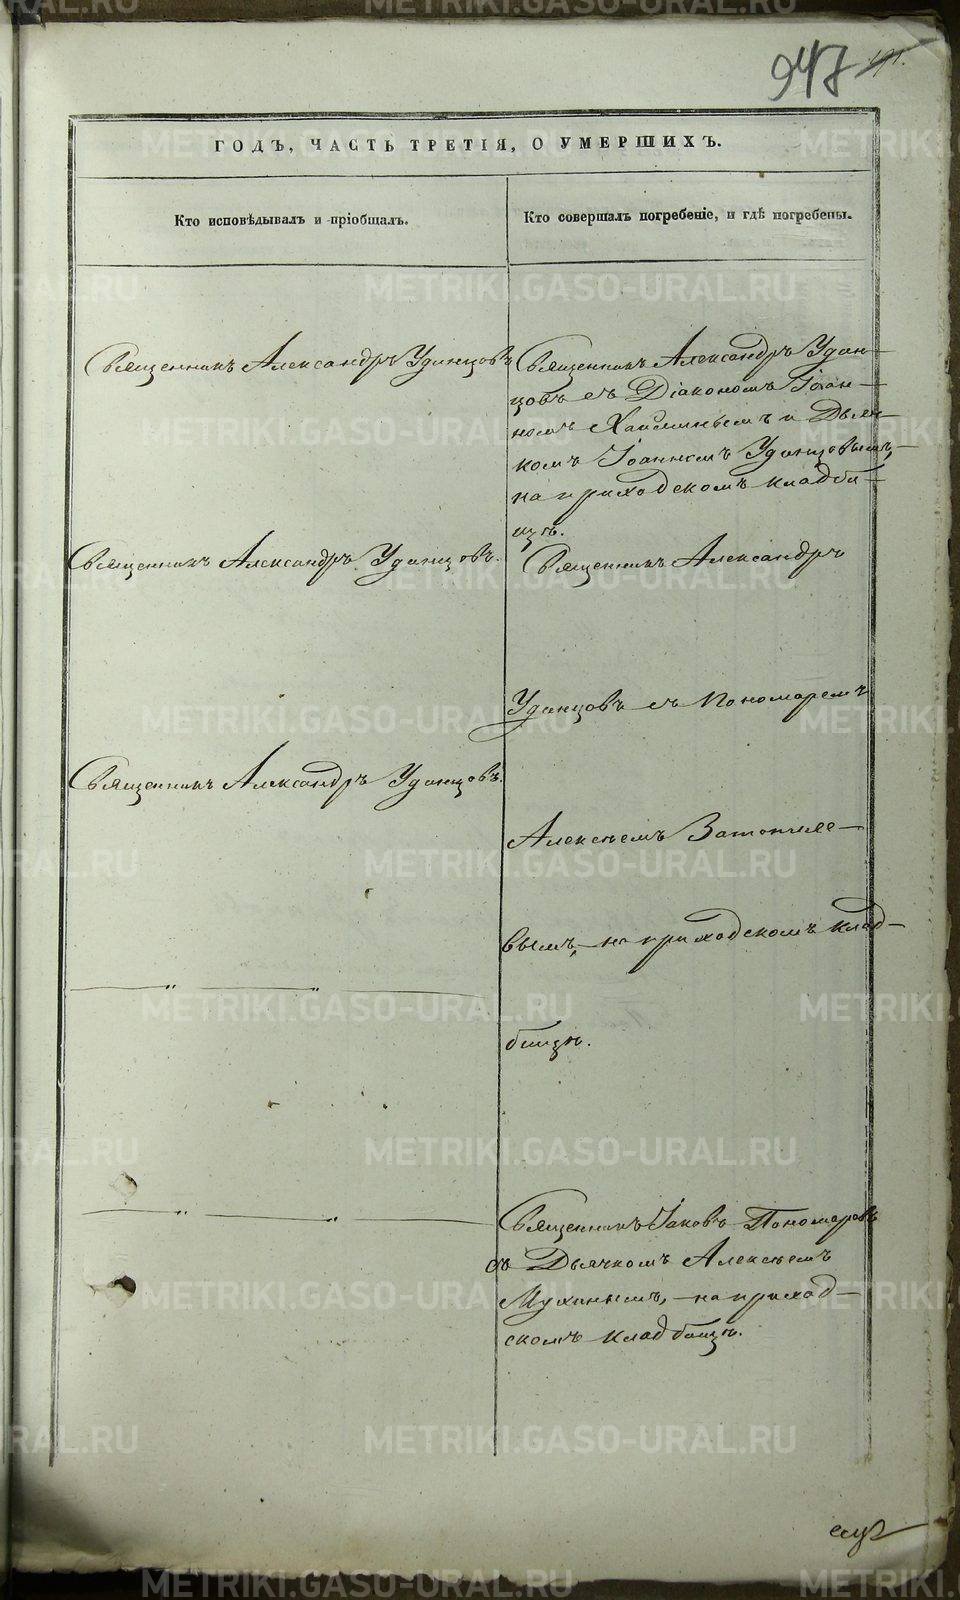 947
ГОДЪ, ЧАСТЬ ТРЕТІЯ, О УМЕРШИХЪ.
Кто исповѣдывалъ и пріобщалъ.
Кто совершалъ погребеніе, и гдѣ погребены.
Священникъ Александръ Удинцовъ
Священникъ Александръ Удин-
цовъ съ Діакономъ Іоан-
номъ и Дьяч-
комъ Іоанномъ Удинцовымъ,
на приходскомъ кладби-
щѣ.
Священникъ Александръ Удинцовъ.
Священникъ Александръ
Удинцовъ съ Пономаремъ
Священникъ Александръ Удинцовъ.
Алексѣемъ Затопляе-
вымъ, на приходскомъ клад-
бищѣ.
Священникъ Іаковъ Пономаревъ
съ Дьячкомъ Алексѣемъ
Мухинымъ, на приход-
скомъ кладбищѣ.
METRIKI.GASO-URAL.RU